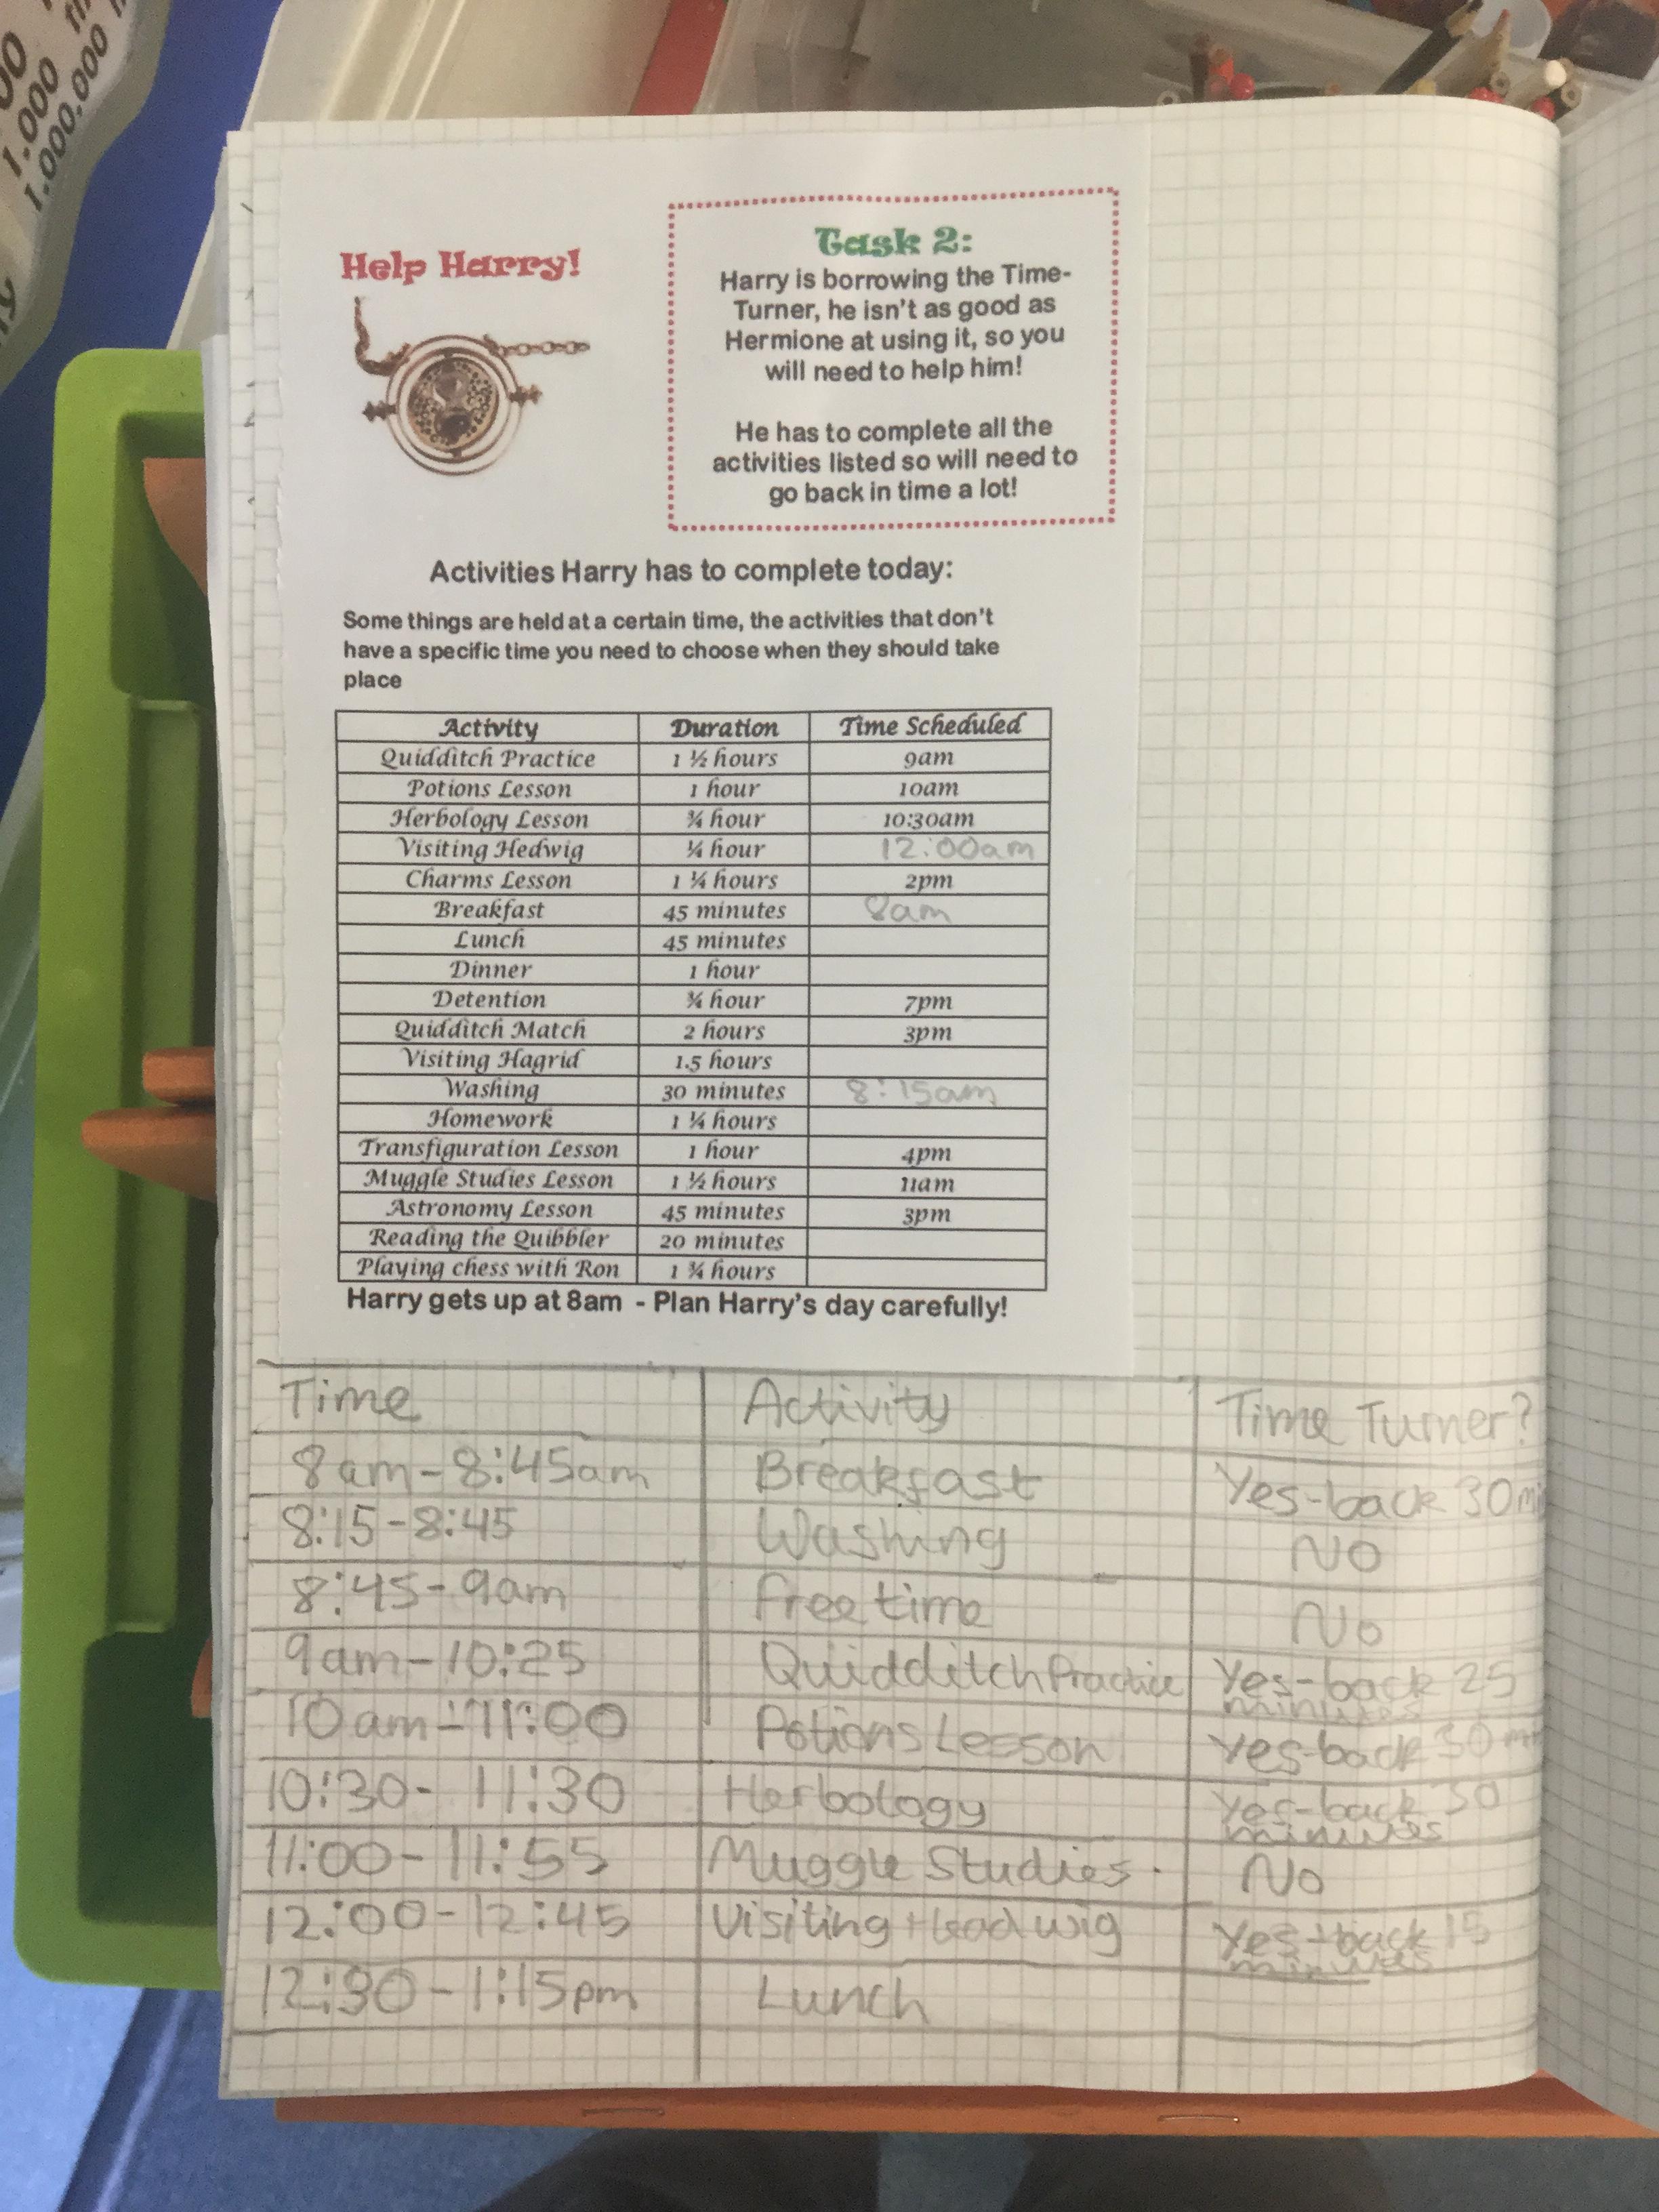 1.000
1.000,000
Help Harry!
Task 2:
Harry is borrowing the Time-
Turner, he isn't as good as
Hermione at using it, so you
will need to help him!
He has to complete all the
activities listed so will need to
go back in time a lot!
Activities Harry has to complete today:
Some things are held at a certain time, the activities that don't
have a specific time you need to choose when they should take
place
Activity Duration Time Scheduled
Quidditch Practice 1 ½ hours 9am
Potions Lesson 1 hour 10am
Herbology Lesson ¾ hour 10:30am
Visiting Hedwig ¼ hour 12:00am
Charms Lesson 1 ¼ hours 2pm
Breakfast 45 minutes 8am
Lunch 45 minutes
Dinner 1 hour
Detention ¾ hour 7pm
Quidditch Match 2 hours 3pm
Visiting Hagrid 1.5 hours
Washing 30 minutes 8:15am
Homework 1 ¼ hours
Transfiguration Lesson 1 hour 4pm
Muggle Studies Lesson 1 ½ hours 11am
Astronomy Lesson 45 minutes 3pm
Reading the Quibbler 20 minutes
Playing chess with Ron 1 ¾ hours
Harry gets up at 8am - Plan Harry's day carefully!
Time Activity Time Turner?
8am-8:45am Breakfast Yes-back 30
8:15-8:45 Washing NO
8:45-9am free time No
9am-10:25 Quidditch Practice Yes-back 25
minutes
10am-11:00 Potions Lesson Yes-back 30
10:30- 11:30 Herbology Yes-back 30
minutes
11:00-11:55 Muggle Studies. No
12:00-12:45 Visiting Headwig Yes-back 15
minutes
12:30-1:15pm Lunch